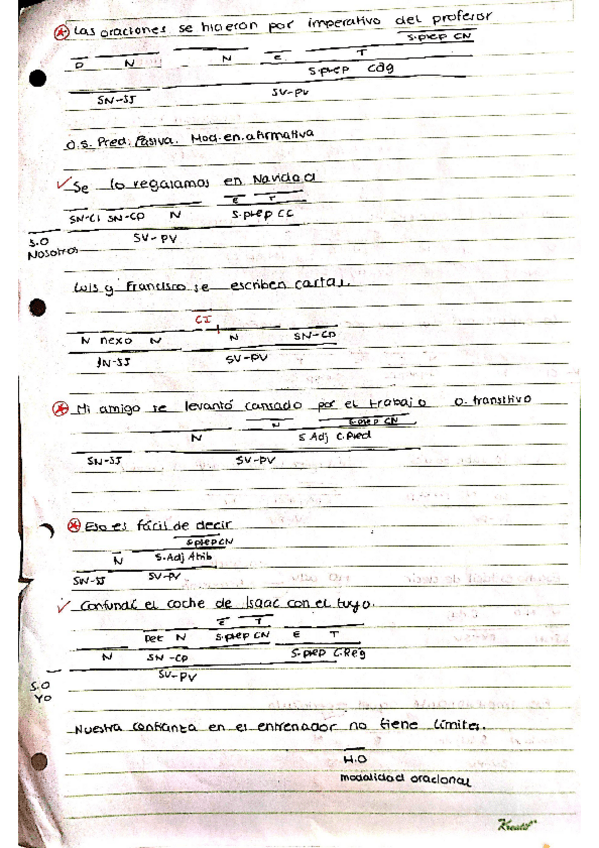 Las oraciones se hicieron por imperativo del profesor
S.prep CN
D N N E T
S.prep Cag
SN-SJ SV-PV
O.S. Pred. Pasiva. Mod. en. afirmativa
Se lo regalamos en Navidad
E T
SN-CI SN-CD N S.prep CC
S.O SV-PV
Nosotros
Luis y Francisco se escriben cartas.
CI
N nexo N N SN-CD
SN-SJ SV-PV
Mi amigo se levantó cansado por el trabajo O. transitivo
N S.prep CN
N S Adj C.Pred
SN-SJ SV-PV
Eso es fácil de decir
S.prep CN
N S.Adj Atrib
SN-SJ SV-PV
Confundí el coche de Isaac con el tuyo.
E T
Det N S.prep CN E T
N SN-CD S.prep C.Reg
SV-PV
S.O
Yo
Nuestra confianza en el entrenador no tiene límites.
M.O
modalidad oracional